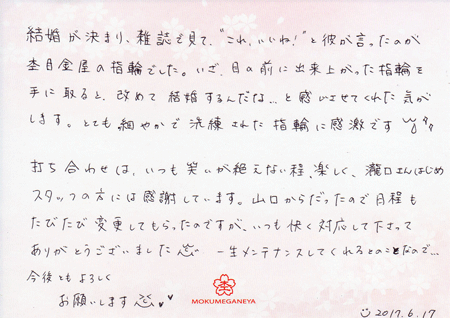 結婚が決まり、雑誌で見て、"これ、いいね!"と彼が言ったのが
杢目金屋の指輪でした。いざ、目の前に出来上がった指輪を
手に取ると、改めて結婚するんだな…と感じさせてくれた気が
します。とても細やかで洗練された指輪に感激です
打ち合わせは、いつも笑いが絶えない程、楽しく、瀧口さんはじめ
スタッフの方には感謝しています。山口からだったので日程も
たびたび変更してもらったのですが、いつも快く対応して下さって
ありがとうございました 一生メンテナンスしてくれるとのことなので…
今後ともよろしく
お願いします
MOKUMEGANEYA
2017.6.17